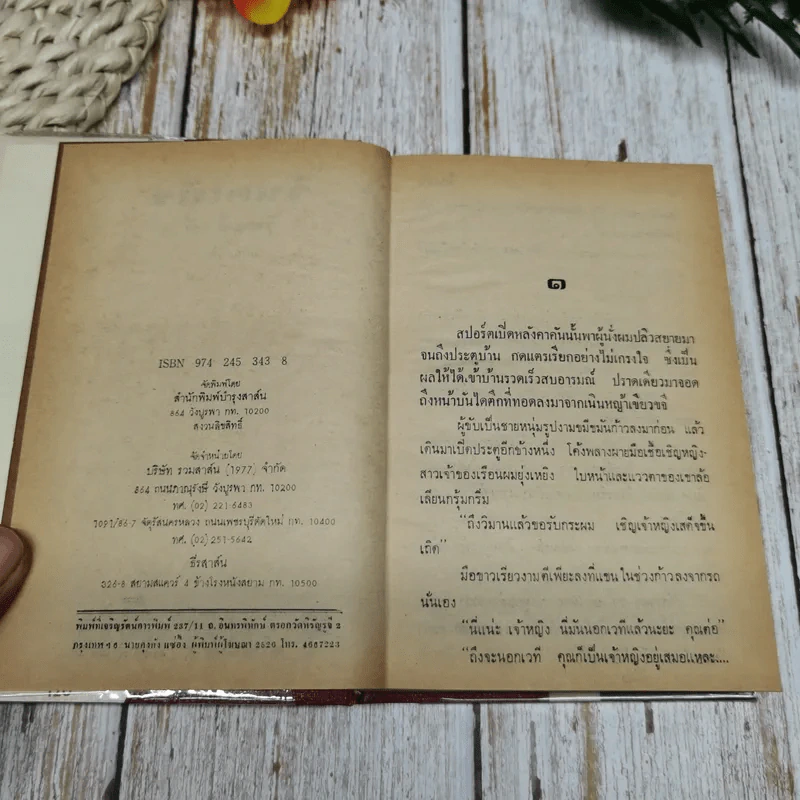 ISBN 974 245 343 8
จัดพิมพ์โดย
สำนักพิมพ์บำรุงสาส์น
864 วังบูรพา กท. 10200
สงวนลิขสิทธิ์
จัดจำหน่ายโดย
บริษัท รวมสาส์น (1977) จำกัด
864 ถนนภาณุรังษี วังบูรพา กท. 10200
ทศ. (02) 221-6483
1091/86-7 จัตุรัสนครหลวง ถนนเพชรบุรีตัดใหม่ กท. 10400
ทศ. (02) 251-5642
ธีรสาส์น
326-8 สยามสแควร์ 4 ข้างโรงหนังสยาม กท. 10500
พิมพ์ที่เจริญรัตน์การพิมพ์ 257/11 ถ. อินทรพิทักษ์ ตรอกวัดหิรัญรูจี 2
กรุงเทพ ฯ นาย แซ่อึ้ง ผู้พิมพ์ผู้โฆษณา 2526 โทร. 4687223
๑
สปอร์ตเปิดหลังคาคันนั้นพาผู้นั่งผมปลิวสยายมา
จนถึงประตูบ้าน กดแตรเรียกอย่างไม่เกรงใจ ซึ่งเป็น
ผลให้ได้เข้าบ้านรวดเร็วสบอารมณ์ ปราดเดียวมาจอด
ถึงหน้าบันไดตึกที่ทอดลงมาจากเนินหญ้าเขียวขจี
ผู้ขับเป็นชายหนุ่มรูปงามขมีขมันก้าวลงมาก่อน แล้ว
เดินมาเปิดประตูอีกข้างหนึ่ง โค้งพลางผายมือเชื้อเชิญหญิง-
สาวเจ้าของเรือนผมยุ่งเหยิง ใบหน้าและแววตาของเขาล้อ
เลียนกรุ้มกริ่ม
“ถึงวิมานแล้วขอรับกระผม เชิญเจ้าหญิงเสด็จขึ้น
เถิด”
มือขาวเรียวงามตีเพียะลงที่แขน ในช่วงก้าวลงจากรถ
นั่นเอง
“นี่แน่ะ เจ้าหญิง นี่มันนอกเวทีแล้วนะยะ คุณต่อ”
“ถึงจะนอกเวที คุณก็เป็นเจ้าหญิงอยู่เสมอแหละ...